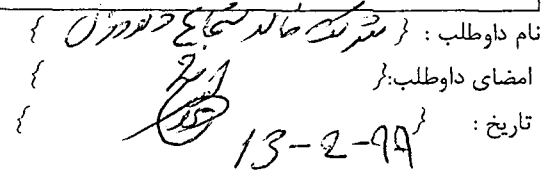 نام داوطلب : { شرکت خالد شجاع و برادران }
امضای داوطلب:{ }
تاریخ : { 13-2-99 }